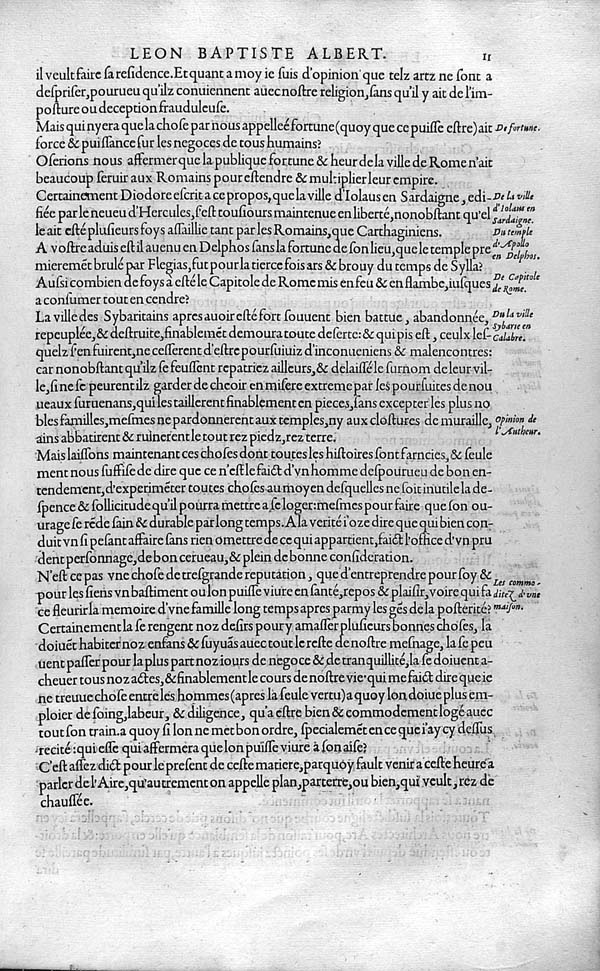 LEON BAPTISTE ALBERT. 11
il veult faire sa residence. Et quant a moy ie suis d'opinion que telz artz ne sont a
despriser, pourueu qu'ilz conuiennent auec nostre religion, sans qu'il y ait de l'im-
posture ou deception frauduleuse.
Mais qui nyera que la chose par nous appelleé fortune (quoy que ce puisse estre) ait
De fortune.
force & puissance sur les negoces de tous humains?
Oserions nous affermer que la publique fortune & heur de la ville de Rome n'ait
beaucoup seruir aux Romains pour estendre & multiplier leur empire.
Certainement Diodore escrit a ce propos, que la ville d'Iolaus en Sardaigne, edi-
De la ville
fiée par le neueu d'Hercules, s'est tousiours maintenue en liberté, nonobstant qu'el
d'Iolaus en
Sardaigne.
le ait esté plusieurs foys assaillie tant par les Romains, que Carthaginiens.
Du temple
A vostre aduis est il auenu en Delphos sans la fortune de son lieu, que le temple pre
d'Apollo
en Delphos.
mieremẽt brulé par Flegias, fut pour la tierce fois ars & brouy du temps de Sylla?
Aussi combien de foys a esté le Capitole de Rome mis en feu & en flambe, iusques
De Capitole
de Rome.
a consumer tout en cendre?
La ville des Sybaritains apres auoir esté fort souuent bien battue, abandonnée,
Du la ville
repeuplée, & destruite, finablemẽt demoura toute deserte: & qui pis est, ceulx les-
Sybarie en
Calabre.
quelz s'en fuirent, ne cesserent d'estre poursuiuiz d'inconueniens & malencontres:
car nonobstant qu'ilz se feussent repatriez ailleurs, & delaissé le surnom de leur vil-
le, si ne se peurent ilz garder de cheoir en misere extreme par les poursuites de nou
ueaux suruenans, qui les taillerent finablement en pieces, sans excepter les plus no
bles familles, mesmes ne pardonnerent aux temples, ny aux clostures de muraille,
Opinion de
l'Autheur.
ains abbatirent & ruinerent le tout rez piedz, rez terre.
Mais laissons maintenant ces choses dont toutes les histoires sont farncies, & seule
ment nous suffise de dire que ce n'est le faict d'vn homme despourueu de bon en-
tendement, d'experimẽter toutes choses au moyen desquelles ne soit inutile la de-
spence & sollicitude qu'il pourra mettre a se loger: mesmes pour faire que son ou-
urage se rẽde sain & durable par long temps. A la verité i'oze dire que qui bien con-
duit vn si pesant affaire sans rien omettre de ce qui appartient, faict l'office d'vn pru
dent personnage, de bon cerueau, & plein de bonne consideration.
N'est ce pas vne chose de tresgrande reputation, que d'entreprendre pour soy &
Les commo-
pour les siens vn bastiment ou lon puisse viure en santé, repos & plaisir, voire qui fa
ditez d'vne
ce fleurir la memoire d'vne famille long temps apres parmy les gẽs de la posterité?
maison.
Certainement la se rengent noz desirs pour y amasser plusieurs bonnes choses, la
doiuẽt habiter noz enfans & suyuãs auec tout le reste de nostre mesnage, la se peu
uent passer pour la plus part noz iours de negoce & de tranquillité, la se doiuent a-
cheuer tous noz actes, & finablement le cours de nostre vie: qui me faict dire que ie
ne treuue chose entre les hommes (apres la seule vertu) a quoy lon doiue plus em-
ploier de soing, labeur, & diligence, qu'a estre bien & commodement logé auec
tout son train. a quoy si lon ne met bon ordre, specialemẽt en ce que i'ay cy dessus
recité: qui esse qui affermera que lon puisse viure à son aise?
C'est assez dict pour le present de ceste matiere, parquoy fault venir a ceste heure a
parler de l'Aire, qu'autrement on appelle plan, parterre, ou bien, qui veult, rez de
chaussée.